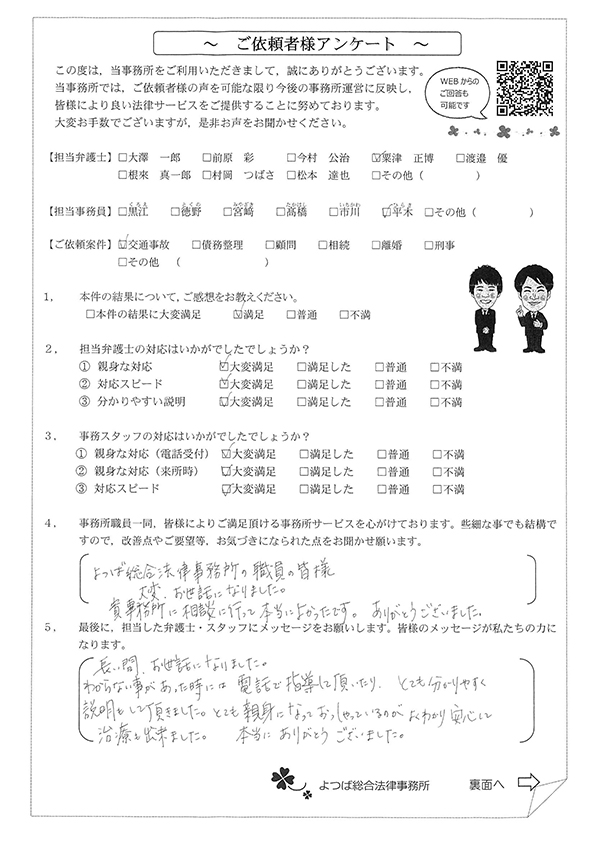 ～ ご依頼者様アンケート ～
この度は，当事務所をご利用いただきまして，誠にありがとうございます。
当事務所では，ご依頼者様の声を可能な限り今後の事務所運営に反映し，
皆様により良い法律サービスをご提供することに努めております。
大変お手数でございますが，是非お声をお聞かせください。
WEBからの
ご回答も
可能です
【担当弁護士】□大澤 一郎 □前原 彩 □今村 公治 ☑粟津 正博 □渡邉 優
□根來 真一郎 □村岡 つばさ □松本 達也 □その他（ ）
くろえ とくの みやざき たかはし いちかわ ひらき
【担当事務員】□黒江 □徳野 □宮﨑 □髙橋 □市川 ☑平木 □その他（ ）
【ご依頼案件】☑交通事故 □債務整理 □顧問 □相続 □離婚 □刑事
□その他 （ ）
１． 本件の結果について，ご感想をお教えください。
□本件の結果に大変満足 ☑満足 □普通 □不満
２． 担当弁護士の対応はいかがでしたでしょうか？
① 親身な対応 ☑大変満足 □満足した □普通 □不満
② 対応スピード ☑大変満足 □満足した □普通 □不満
③ 分かりやすい説明 ☑大変満足 □満足した □普通 □不満
３． 事務スタッフの対応はいかがでしたでしょうか？
① 親身な対応（電話受付） ☑大変満足 □満足した □普通 □不満
② 親身な対応（来所時） ☑大変満足 □満足した □普通 □不満
③ 対応スピード ☑大変満足 □満足した □普通 □不満
４． 事務所職員一同，皆様によりご満足頂ける事務所サービスを心がけております。些細な事でも結構で
すので，改善点やご要望等，お気づきになられた点をお聞かせ願います。
よつば総合法律事務所の職員の皆様
大変、お世話になりました。
貴事務所に相談に行って本当によかったです。ありがとうございました。
５． 最後に，担当した弁護士・スタッフにメッセージをお願いします。皆様のメッセージが私たちの力に
なります。
長い間、お世話になりました。
わからない事があった時には電話で指導して頂いたり、とても分かりやすく
説明もして頂きました。とても親身になっておっしゃっているのがよくわかり安心して
治療も出来ました。 本当にありがとうございました。
よつば総合法律事務所 裏面へ